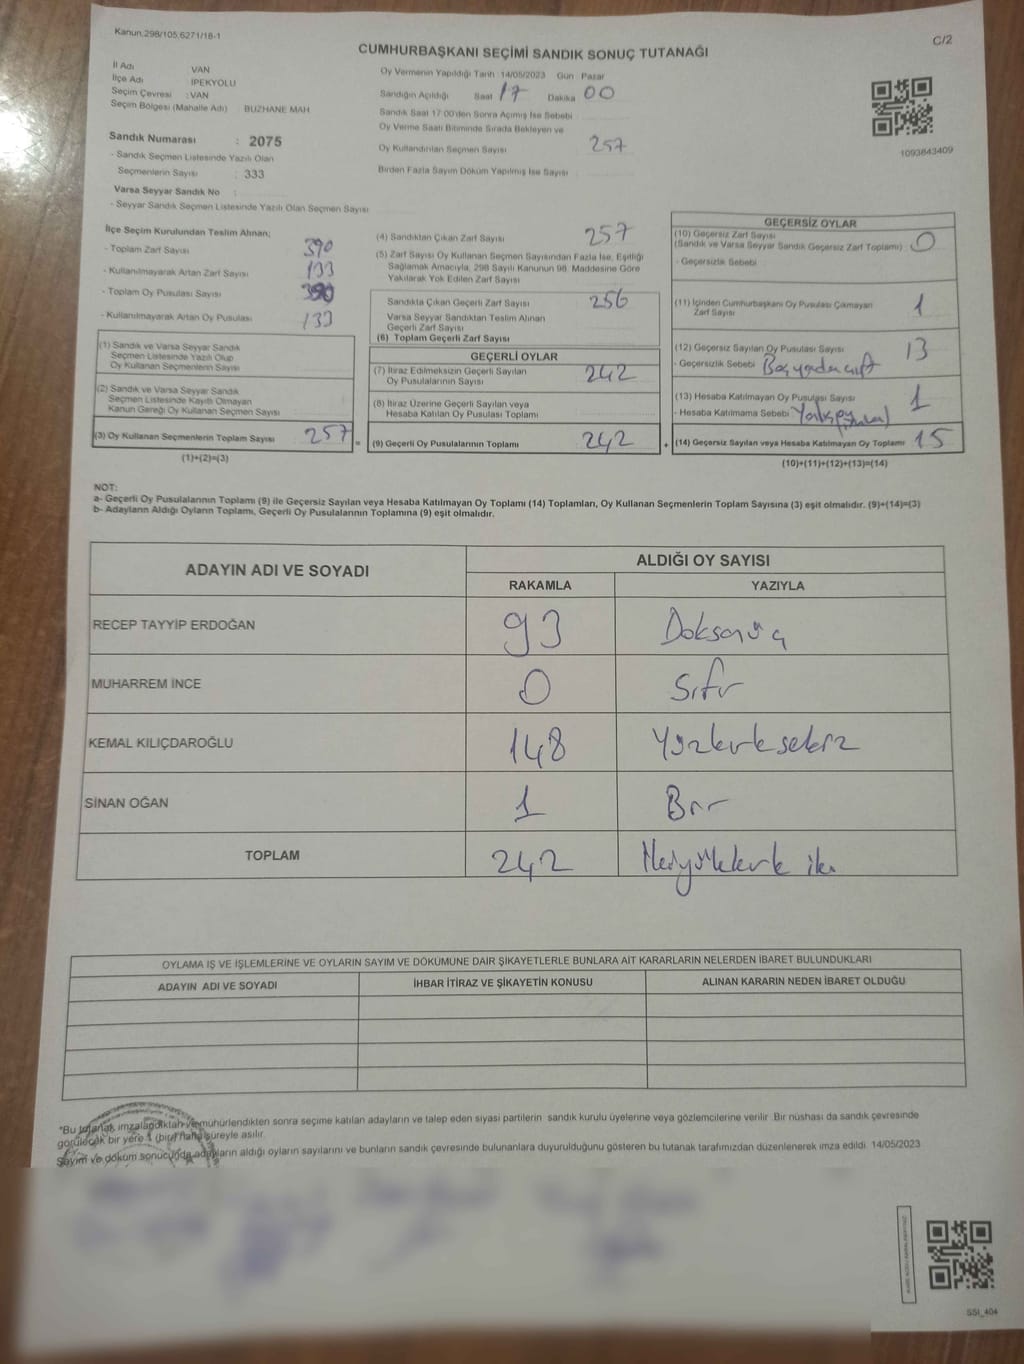 Kanun,298/105,6271/18-1
C/2
CUMHURBAŞKANI SEÇİMİ SANDIK SONUÇ TUTANAĞI
İl Adı VAN
İlçe Adı İPEKYOLU
Seçim Çevresi : VAN
Seçim Bölgesi (Mahalle Adı) BUZHANE MAH
Sandık Numarası : 2075
- Sandık Seçmen Listesinde Yazılı Olan
Seçmenlerin Sayısı : 333
Varsa Seyyar Sandık No :
- Seyyar Sandık Seçmen Listesinde Yazılı Olan Seçmen Sayısı
Oy Vermenin Yapıldığı Tarih 14/05/2023 Gün Pazar
Sandığın Açıldığı Saat 17 Dakika 00
Sandık Saat 17:00'den Sonra Açımış İse Sebebi
Oy Verme Saati Bitiminde Sırada Bekleyen ve
Oy Kullandırılan Seçmen Sayısı 257
Birden Fazla Sayım Döküm Yapılmış İse Sayısı
1093843409
İlçe Seçim Kurulundan Teslim Alınan;
- Toplam Zarf Sayısı 390
- Kullanılmayarak Artan Zarf Sayısı 133
- Toplam Oy Pusulası Sayısı 390
- Kullanılmayarak Artan Oy Pusulası 133
(1) Sandık ve Varsa Seyyar Sandık
Seçmen Listesinde Yazılı Olup
Oy Kullanan Seçmenlerin Sayısı
(2) Sandık ve Varsa Seyyar Sandık
Seçmen Listesinde Kayıtlı Olmayan
Kanun Gereği Oy Kullanan Seçmen Sayısı
(3) Oy Kullanan Seçmenlerin Toplam Sayısı 257 =
(1)+(2)=(3)
(4) Sandıktan Çıkan Zarf Sayısı 257
(5) Zarf Sayısı Oy Kullanan Seçmen Sayısından Fazla İse, Eşitliği
Sağlamak Amacıyla, 298 Sayılı Kanunun 98. Maddesine Göre
Yakılarak Yok Edilen Zarf Sayısı
Sandıkta Çıkan Geçerli Zarf Sayısı 256
Varsa Seyyar Sandıktan Teslim Alınan
Geçerli Zarf Sayısı
(6) Toplam Geçerli Zarf Sayısı
GEÇERLİ OYLAR
(7) İtiraz Edilmeksizin Geçerli Sayılan
Oy Pusulalarının Sayısı 242
(8) İtiraz Üzerine Geçerli Sayılan veya
Hesaba Katılan Oy Pusulası Toplamı
(9) Geçerli Oy Pusulalarının Toplamı 242 +
GEÇERSİZ OYLAR
(10) Geçersiz Zarf Sayısı
(Sandık ve Varsa Seyyar Sandık Geçersiz Zarf Toplamı) 0
- Geçersizlik Sebebi
(11) İçinden Cumhurbaşkanı Oy Pusulası Çıkmayan
Zarf Sayısı 1
(12) Geçersiz Sayılan Oy Pusulası Sayısı 13
- Geçersizlik Sebebi
(13) Hesaba Katılmayan Oy Pusulası Sayısı 1
- Hesaba Katılmama Sebebi
(14) Geçersiz Sayılan veya Hesaba Katılmayan Oy Toplamı 15
(10)+(11)+(12)+(13)=(14)
NOT:
a- Geçerli Oy Pusulalarının Toplamı (9) ile Geçersiz Sayılan veya Hesaba Katılmayan Oy Toplamı (14) Toplamları, Oy Kullanan Seçmenlerin Toplam Sayısına (3) eşit olmalıdır. (9)+(14)=(3)
b- Adayların Aldığı Oyların Toplamı, Geçerli Oy Pusulalarının Toplamına (9) eşit olmalıdır.
ADAYIN ADI VE SOYADI ALDIĞI OY SAYISI
RAKAMLA YAZIYLA
RECEP TAYYİP ERDOĞAN 93 Doksanüç
MUHARREM İNCE 0 Sıfır
KEMAL KILIÇDAROĞLU 148 Yüzkırksekiz
SİNAN OĞAN 1 Bir
TOPLAM 242 İkiyüzkırk iki
OYLAMA İŞ VE İŞLEMLERİNE VE OYLARIN SAYIM VE DÖKÜMÜNE DAİR ŞİKAYETLERLE BUNLARA AİT KARARLARIN NELERDEN İBARET BULUNDUKLARI
ADAYIN ADI VE SOYADI İHBAR İTİRAZ VE ŞİKAYETİN KONUSU ALINAN KARARIN NEDEN İBARET OLDUĞU
*Bu tutanak imzalandıktan ve mühürlendikten sonra seçime katılan adayların ve talep eden siyasi partilerin sandık kurulu üyelerine veya gözlemcilerine verilir. Bir nüshası da sandık çevresinde
görülecek bir yere 1 (bir) hafta süreyle asılır.
Sayım ve döküm sonucunda adayların aldığı oyların sayılarını ve bunların sandık çevresinde bulunanlara duyurulduğunu gösteren bu tutanak tarafımızdan düzenlenerek imza edildi. 14/05/2023
SSI_404